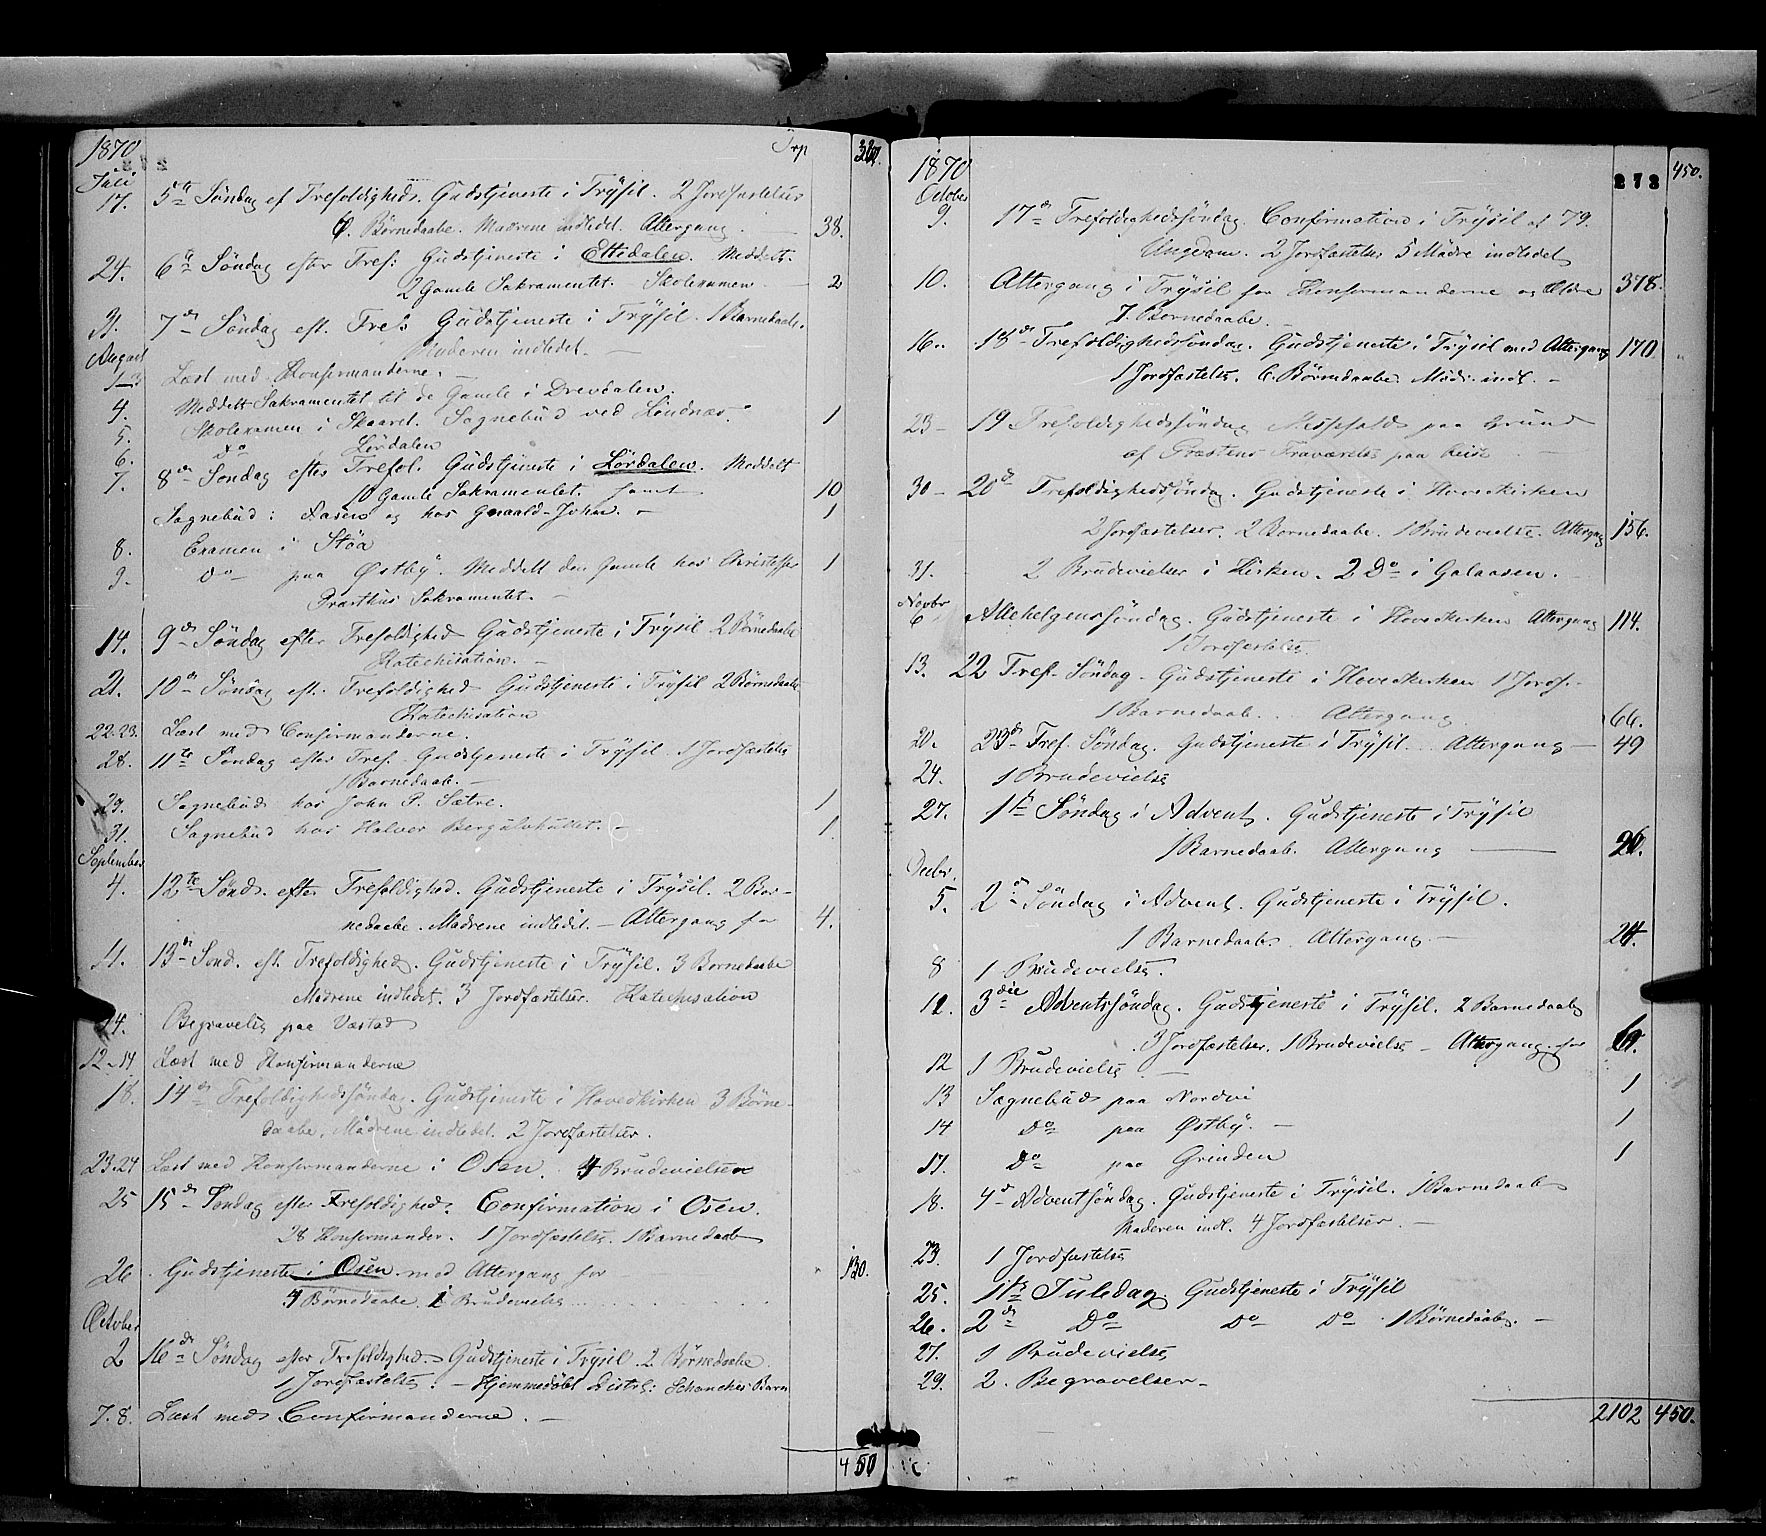 1870 Trp 320.
Juli
17. 5te Søndag ef Trefoldigheds. Gudstjeneste i Trysil. 2 Jordfæstelser
6. Børnedaabe. Mødrene indledet. Altergang 38.
24. 6te Søndag efter Tref: Gudstjeneste i Eltdalen. Meddelt
2 Gamle Sakramentet. Skoleexamen 2
31. 7de Søndag eft. Tref: Gudstjeneste i Trysil. 1 Barnedaab.
Moderen indledet. -
August
1-3 Læst med Konfirmanderne. -
4. Meddelt Sakramentet til de Gamle i Drevdalen.
5. Skoleexamen i Skaaret. Sognebud ved Lindnæs 1
6. do Lørdalen
7. 8de Søndag efter Trefol. Gudstjeneste i Lørdalen. Meddelt
10 Gamle Sakramentet. samt 10
Sognebud i Aasen og hos -John. - 1
8. Examen i Støa
9. do paa Østby. Meddelt den Gamle hos Christoffer 1
Præsthus Sakramentet. -
14. 9de Søndag efter Trefoldighed Gudstjeneste i Trysil 2 Børnedaabe
Katechisation. -
21. 10de Søndag eft. Trefoldighed Gudstjeneste i Trysil 2 Børnedaabe
Katechisation
22-23. Læst med Confirmanderne.
28. 11te Søndag efter Tref. Gudstjeneste i Trysil. 1 Jordfæstelse
1 Barnedaab. -
29. Sognebud hos John P. Sætre. 1
31. Sognebud hos Halvor - 1.
September
4. 12te Sønd. efter Trefoldighed. Gudstjeneste i Trysil. 2 Bør-
nedaabe. Mødrene indledet. - Altergang for 4.
11. 13de Sønd. eft. Trefoldighed. Gudstjeneste i Trysil. 3 Børnedaabe
Mødrene indledet. 3 Jordfæstelser. Katechisation
14. Begravelse paa Væstad
12-14 Læst med Konfirmanderne
18. 14de Trefoldighedssøndag. Gudstjeneste i Hovedkirken 3 Børne-
daabe, Mødrene indledet. 2 Jordfæstelser.
23-24 Læst med Konfirmanderne i Osen. 4 Brudevielser
25 15de Søndag efter Trefoldighed. Confirmation i Osen.
28 Konfirmander. 1 Jordfæstelse. 1 Barnedaab
26 Gudstjeneste i Osen med Altergang for 130.
4 Børnedaabe. 1 Brudevielse
October
2 16de Søndag efter Trefoldighed. Gudstjeneste i Trysil. 2 Børnedaabe.
1 Jordfæstelse. - Hjemmedøbt Distrl: Schanches Barn
7. 8. Læst med Confirmanderne. -
450
1870 272 450.
October
9. 17de Trefoldighedssøndag. Confirmation i Trysil af 79.
Ungdom. 2 Jordfæstelser 5 Mødre indledet
10. Altergang i Trysil for Konfirmanderne og Ældre 378.
7. Børnedaabe.
16. 18de Trefoldighedssøndag. Gudstjeneste i Trysil med Altergang 170
1 Jordfæstelse. 6. Børnedaabe. Mødr. indl. -
23 - 19 Trefoldighedssøndag Messefald paa Grund
af Præstens Fraværelse paa Reise -
30 - 20de Trefoldighedssøndag. Gudstjeneste i Hovedkirken
2 Jordfæstelser. 2 Børnedaabe. 1 Brudevielse. Altergang 156.
31. 2 Brudevielser i Kirken. 2 Do i Galaasen. -
Novbr
6 Allehelgenssøndag. Gudstjeneste i Hovedkirken Altergang 114.
1 Jordfæstelse.
13. 22 Tref. Søndag. Gudstjeneste i Hovedkirken 1 Jordf.-
1 Barnedaab. Altergang 66.
20. 23de Tref. Søndag. Gudstjeneste i Trysil. Altergang - 49
24. 1 Brudevielse
27. 1ste Søndag i Advent. Gudstjeneste i Trysil
1 Barnedaab. Altergang 20.
Decbr.
5. 2de Søndag i Advent. Gudstjeneste i Trysil.
1 Barnedaab. Altergang. - 24.
8 1 Brudevielse.
11. 3die Adventssøndag. Gudstjeneste i Trysil. 2 Barnedaabe
3 Jordfæstelser. 1 Brudevielse - Altergang for
12 1 Brudevielse
13 Sognebud paa Nordvi 1
14 Do paa Østby. - 1
17. Do paa Grinden 1
18. 4de Adventsøndag. Gudstjeneste i Trysil. 1 Barnedaab
Moderen indl. 4 Jordfæstelser. -
23. 1 Jordfæstelse
25. 1ste Juledag. Gudstjeneste i Trysil
26. 2de Do Do Do 1 Børnedaab. -
27. 1 Brudevielse
29. 2. Begravelser -
2102 450.